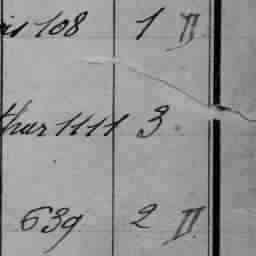 is 108 1 II
thur 1111 3
639 2 II